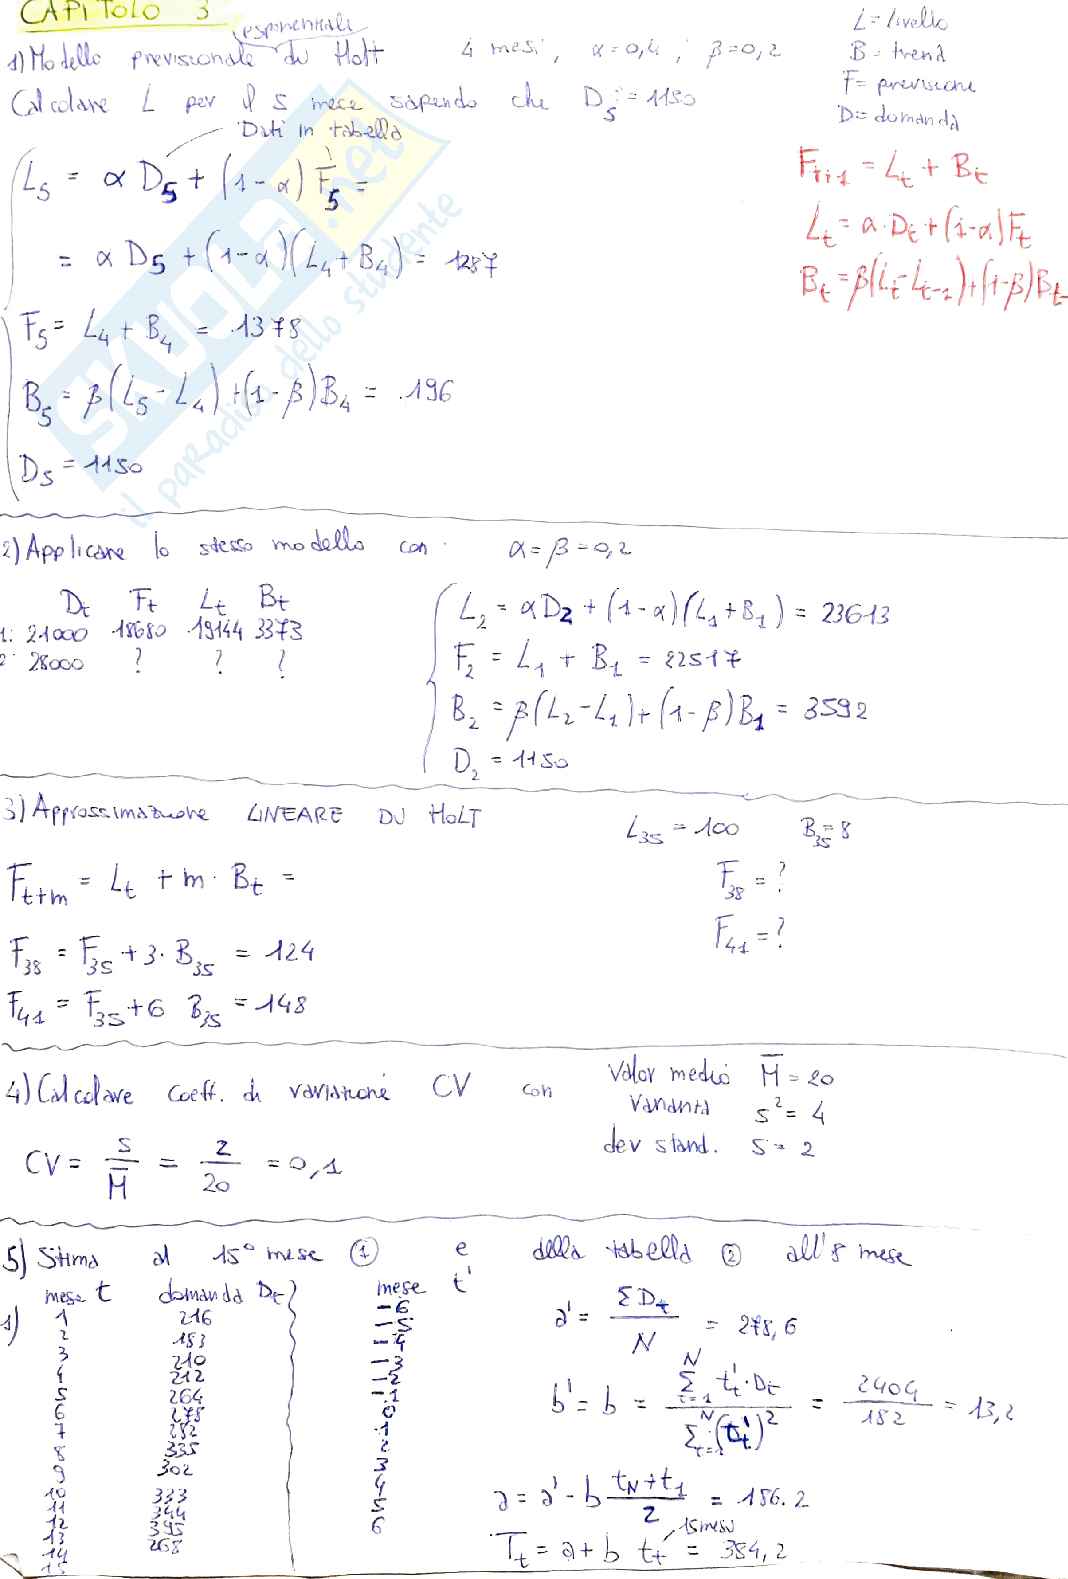 CAPITOLO 3
1) Modello previsionale (esponenziale) di Holt 4 mesi, α=0,4 ; β=0,2
Calcolare L per il 5 mese sapendo che D5=1150
Dati in tabella
L=livello
B=trend
F=previsione
D=domanda
L5 = α D5 + (1-α) F5 =
= α D5 + (1-α)(L4+B4) = 1287
F5 = L4 + B4 = 1378
B5 = β(L5-L4)+(1-β)B4 = 196
D5 = 1150
Ft+1 = Lt + Bt
Lt = α·Dt+(1-α)Ft
Bt = β(Lt-Lt-1)+(1-β)Bt-
2) Applicare lo stesso modello con α=β=0,2
Dt Ft Lt Bt
1: 21000 18680 19144 3373
2: 28000 ? ? ?
L2 = αD2 + (1-α)(L1+B1) = 23613
F2 = L1 + B1 = 22517
B2 = β(L2-L1)+(1-β)B1 = 3592
D2 = 1150
3) Approssimazione LINEARE DI HOLT L35 = 100 B35=8
Ft+m = Lt + m · Bt =
F38 = ?
F41 = ?
F38 = F35 + 3· B35 = 124
F41 = F35+6 B35 = 148
4) Calcolare coeff. di variazione CV con
valor medio M̅ = 20
varianza s² = 4
dev stand. s = 2
CV = s/M̅ = 2/20 = 0,1
5) Stima al 15° mese ① e della tabella ② all'8 mese
mese t domanda Dt mese t'
1)
1 216 -6
2 183 -5
3 210 -4
4 212 -3
5 264 -2
6 278 -1
7 282 0
8 335 1
9 302 2
10 333 3
11 344 4
12 345 5
13 268 6
14
15
a' = ΣDt/N = 278,6
b' = b = Σ(t=1..N) t't·Dt / Σ(t=1..N) (t't)² = 2404/182 = 13,2
a = a' - b (tN+t1)/2 = 186.2
15 mesi
Tt = a + b tt = 384,2
SKUOLA.net
il paradiso dello studente